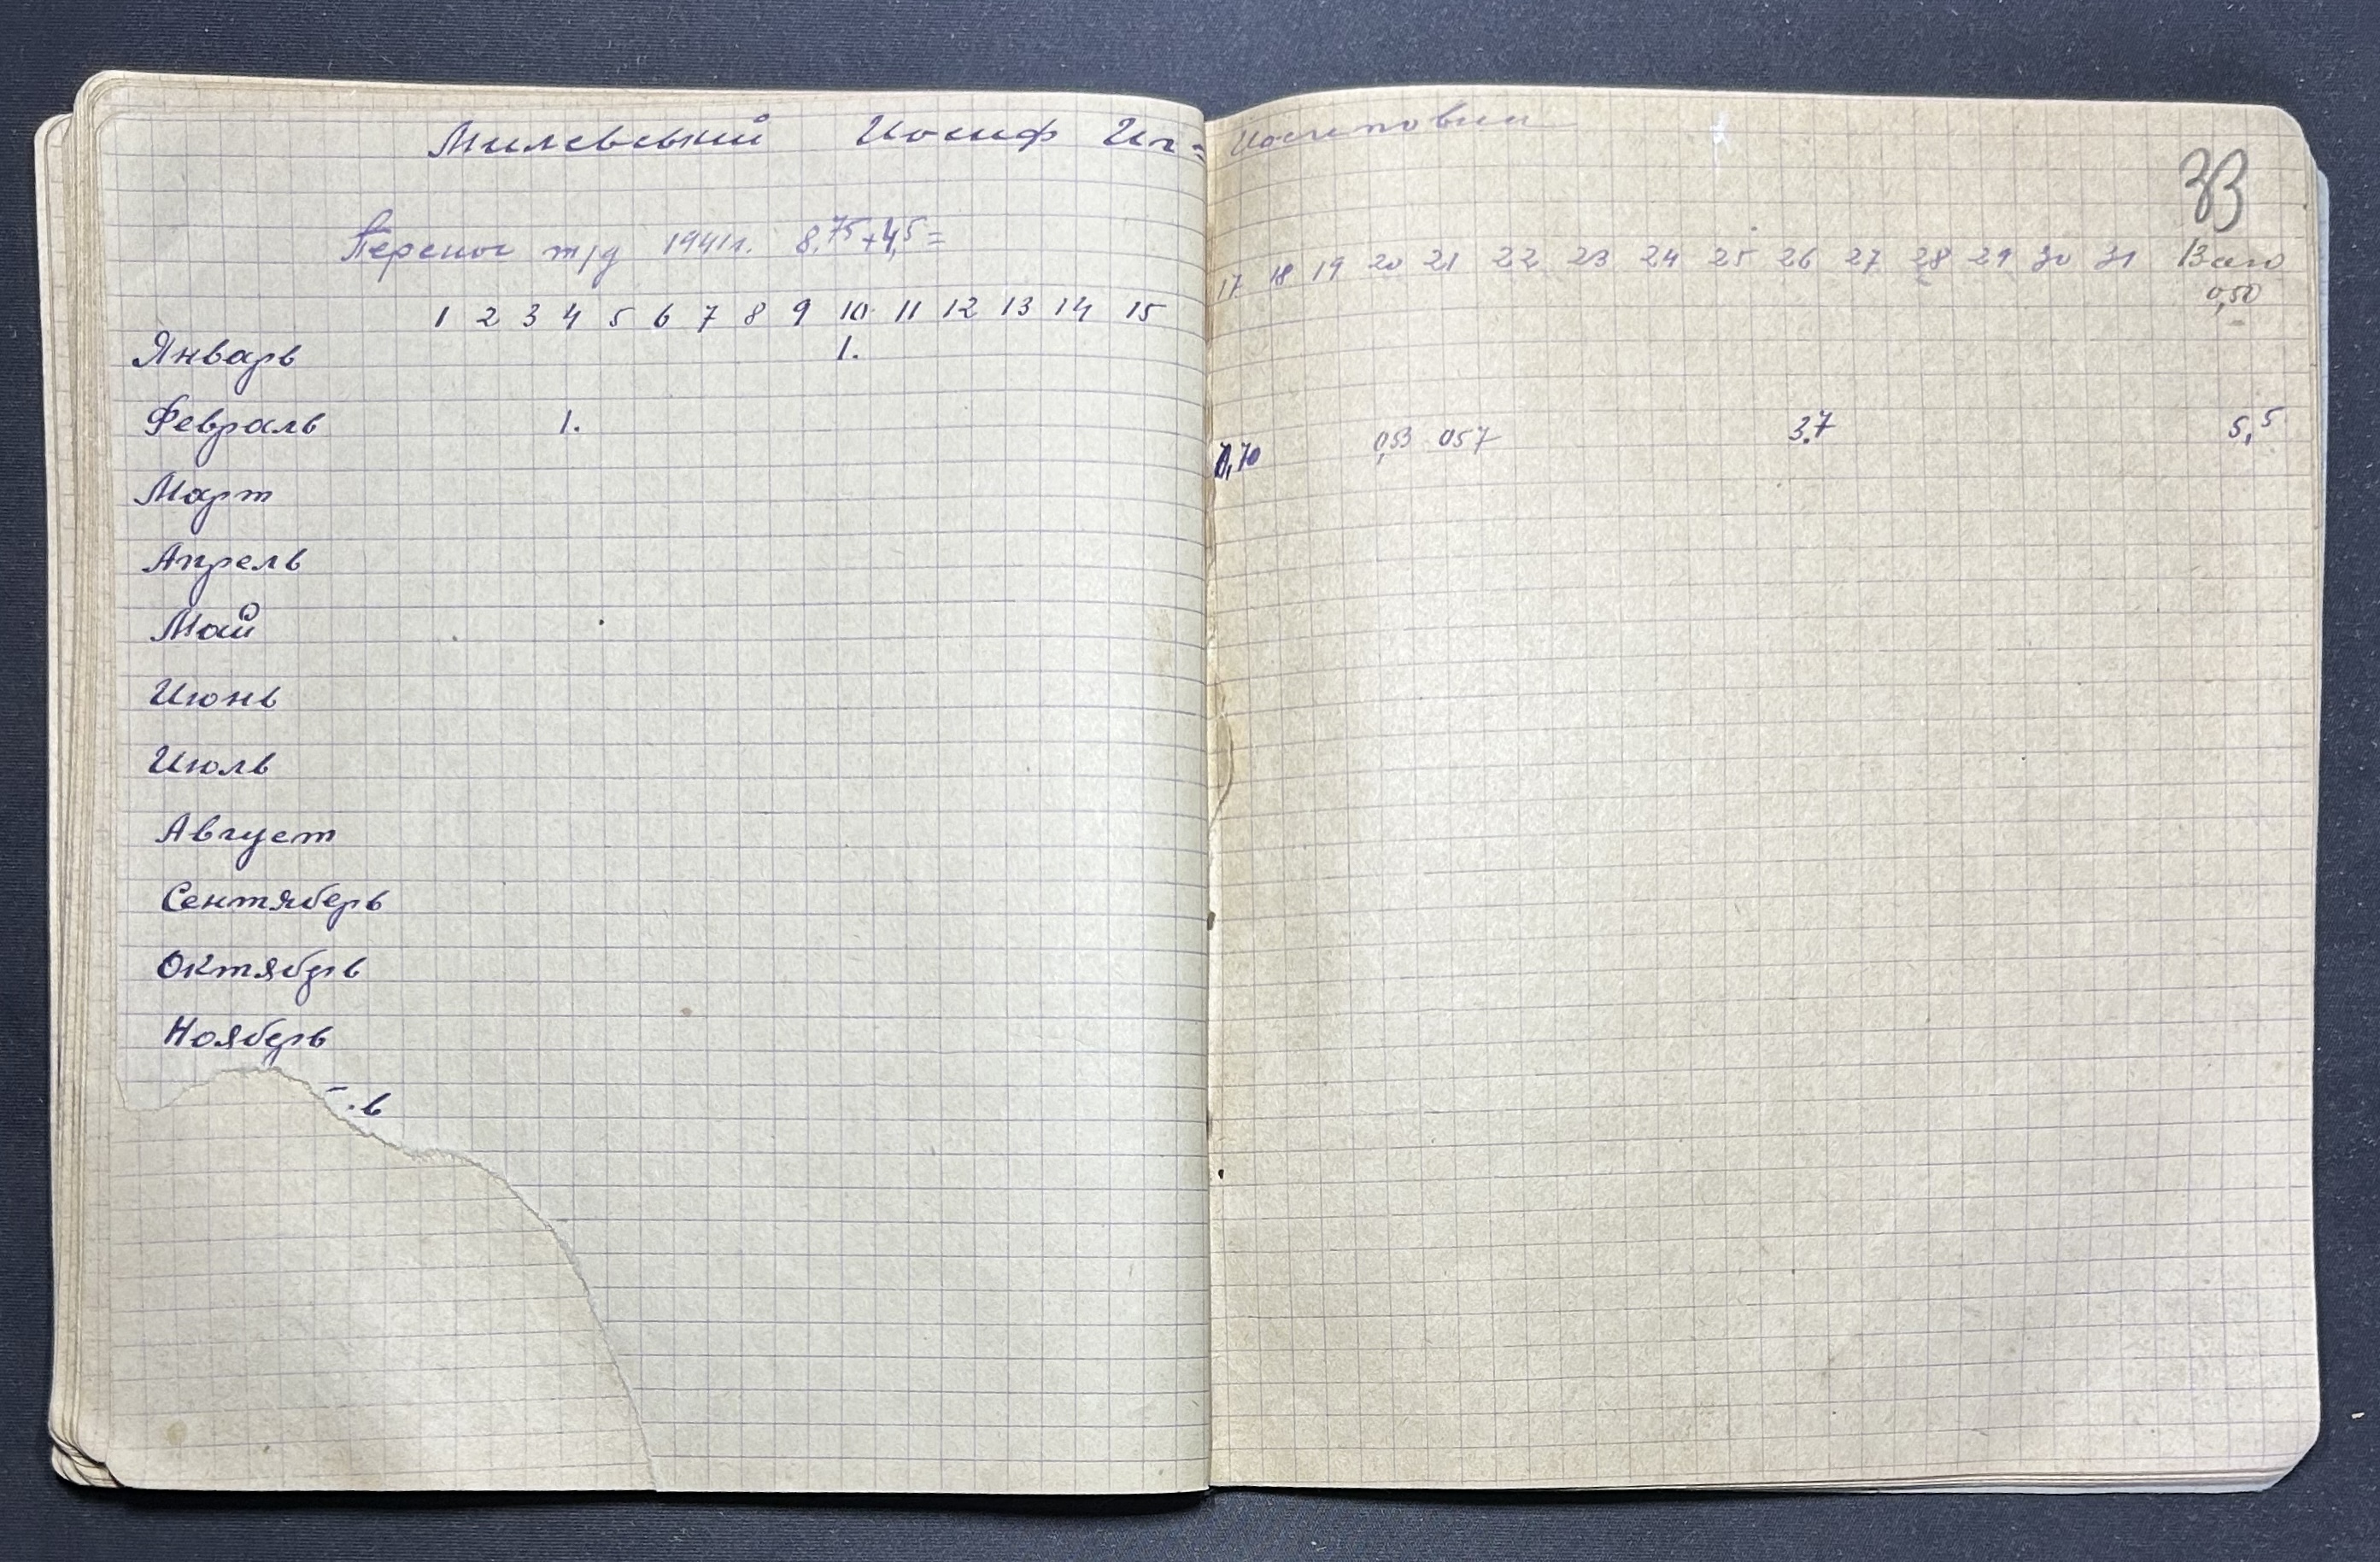 Милевський Иосиф Иг= Иосипович
33
Перенос т/д 1941г. 8,75+4,5=
17 18 19 20 21 22 23 24 25 26 27 28 29 30 31
0,50
1 2 3 4 5 6 7 8 9 10 11 12 13 14 15
Январь 1.
Февраль 1. 0,70 0,53 057 3.7 5,5
Март
Апрель
Май
Июнь
Июль
Август
Сентяберь
Октябрь
Нояберь